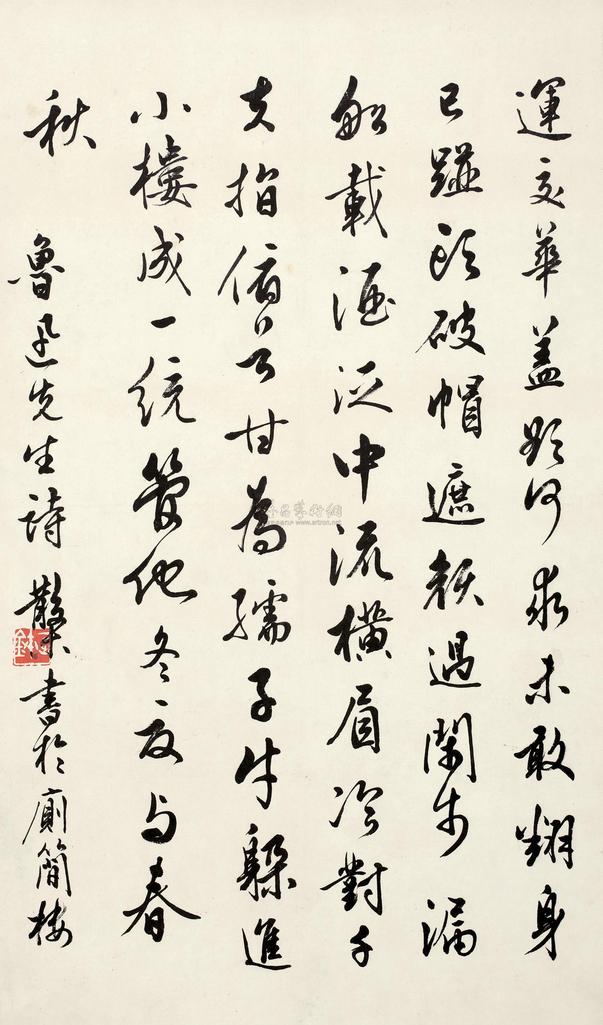 運交華蓋欲何求未敢翻身
已踫頭破帽遮顏過鬧市漏
船載酒泛中流橫眉冷對千
夫指俯首甘為孺子牛躲進
小樓成一統管他冬夏与春
秋 魯迅先生詩 散木書於廁簡樓
www.artron.net